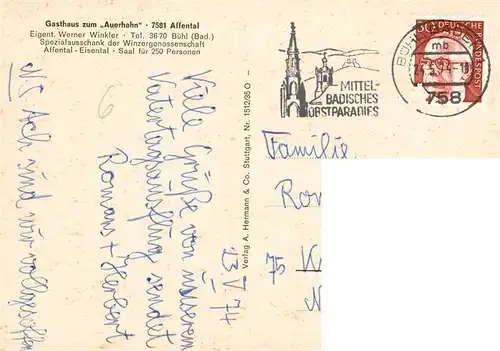 Gasthaus zum „Auerhahn" · 7581 Affental
Eigent. Werner Winkler · Tel. 3670 Bühl (Bad.)
Spezialausschank der Winzergenossenschaft
Affental - Eisental · Saal für 250 Personen
13. V. 74
Viele Grüße von unserem
Vatertagsausflug sendet
Roman + Herbert
NS Ach sind wir vollgesoffen
Verlag A. Hermann & Co. Stuttgart, Nr. 1512/35 O
MITTEL-
BADISCHES
OBSTPARADIES
BÜHL
mb
758
DEUTSCHE BUNDESPOST
Familie
75 K